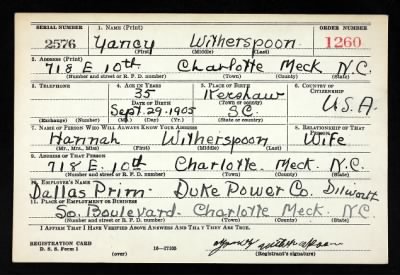 SERIAL NUMBER 1. NAME (Print) ORDER NUMBER
2576 Yancy Witherspoon 1260
(First) (Middle) (Last)
2. ADDRESS (Print)
718 E. 10th Charlotte Meck N.C.
(Number and street or R. F. D. number) (Town) (County) (State)
3. TELEPHONE 4. AGE IN YEARS 5. PLACE OF BIRTH 6. COUNTRY OF CITIZENSHIP
35 Kershaw
DATE OF BIRTH (Town or county)
Sept. 29. 1905 S.C. U.S.A.
(Exchange) (Number) (Mo.) (Day) (Yr.) (State or country)
7. NAME OF PERSON WHO WILL ALWAYS KNOW YOUR ADDRESS 8. RELATIONSHIP OF THAT PERSON
Hannah Witherspoon Wife
(Mr., Mrs., Miss) (First) (Middle) (Last)
9. ADDRESS OF THAT PERSON
718 E. 10th Charlotte. Meck. N.C.
(Number and street or R. F. D. number) (Town) (County) (State)
10. EMPLOYER'S NAME
Dallas Prim- Duke Power Co. Dilworth
11. PLACE OF EMPLOYMENT OR BUSINESS
So. Boulevard- Charlotte Meck. NC
(Number and street or R. F. D. number) (Town) (County) (State)
I AFFIRM THAT I HAVE VERIFIED ABOVE ANSWERS AND THAT THEY ARE TRUE.
REGISTRATION CARD
D. S. S. Form 1 16-17105
(over) (Registrant's signature)